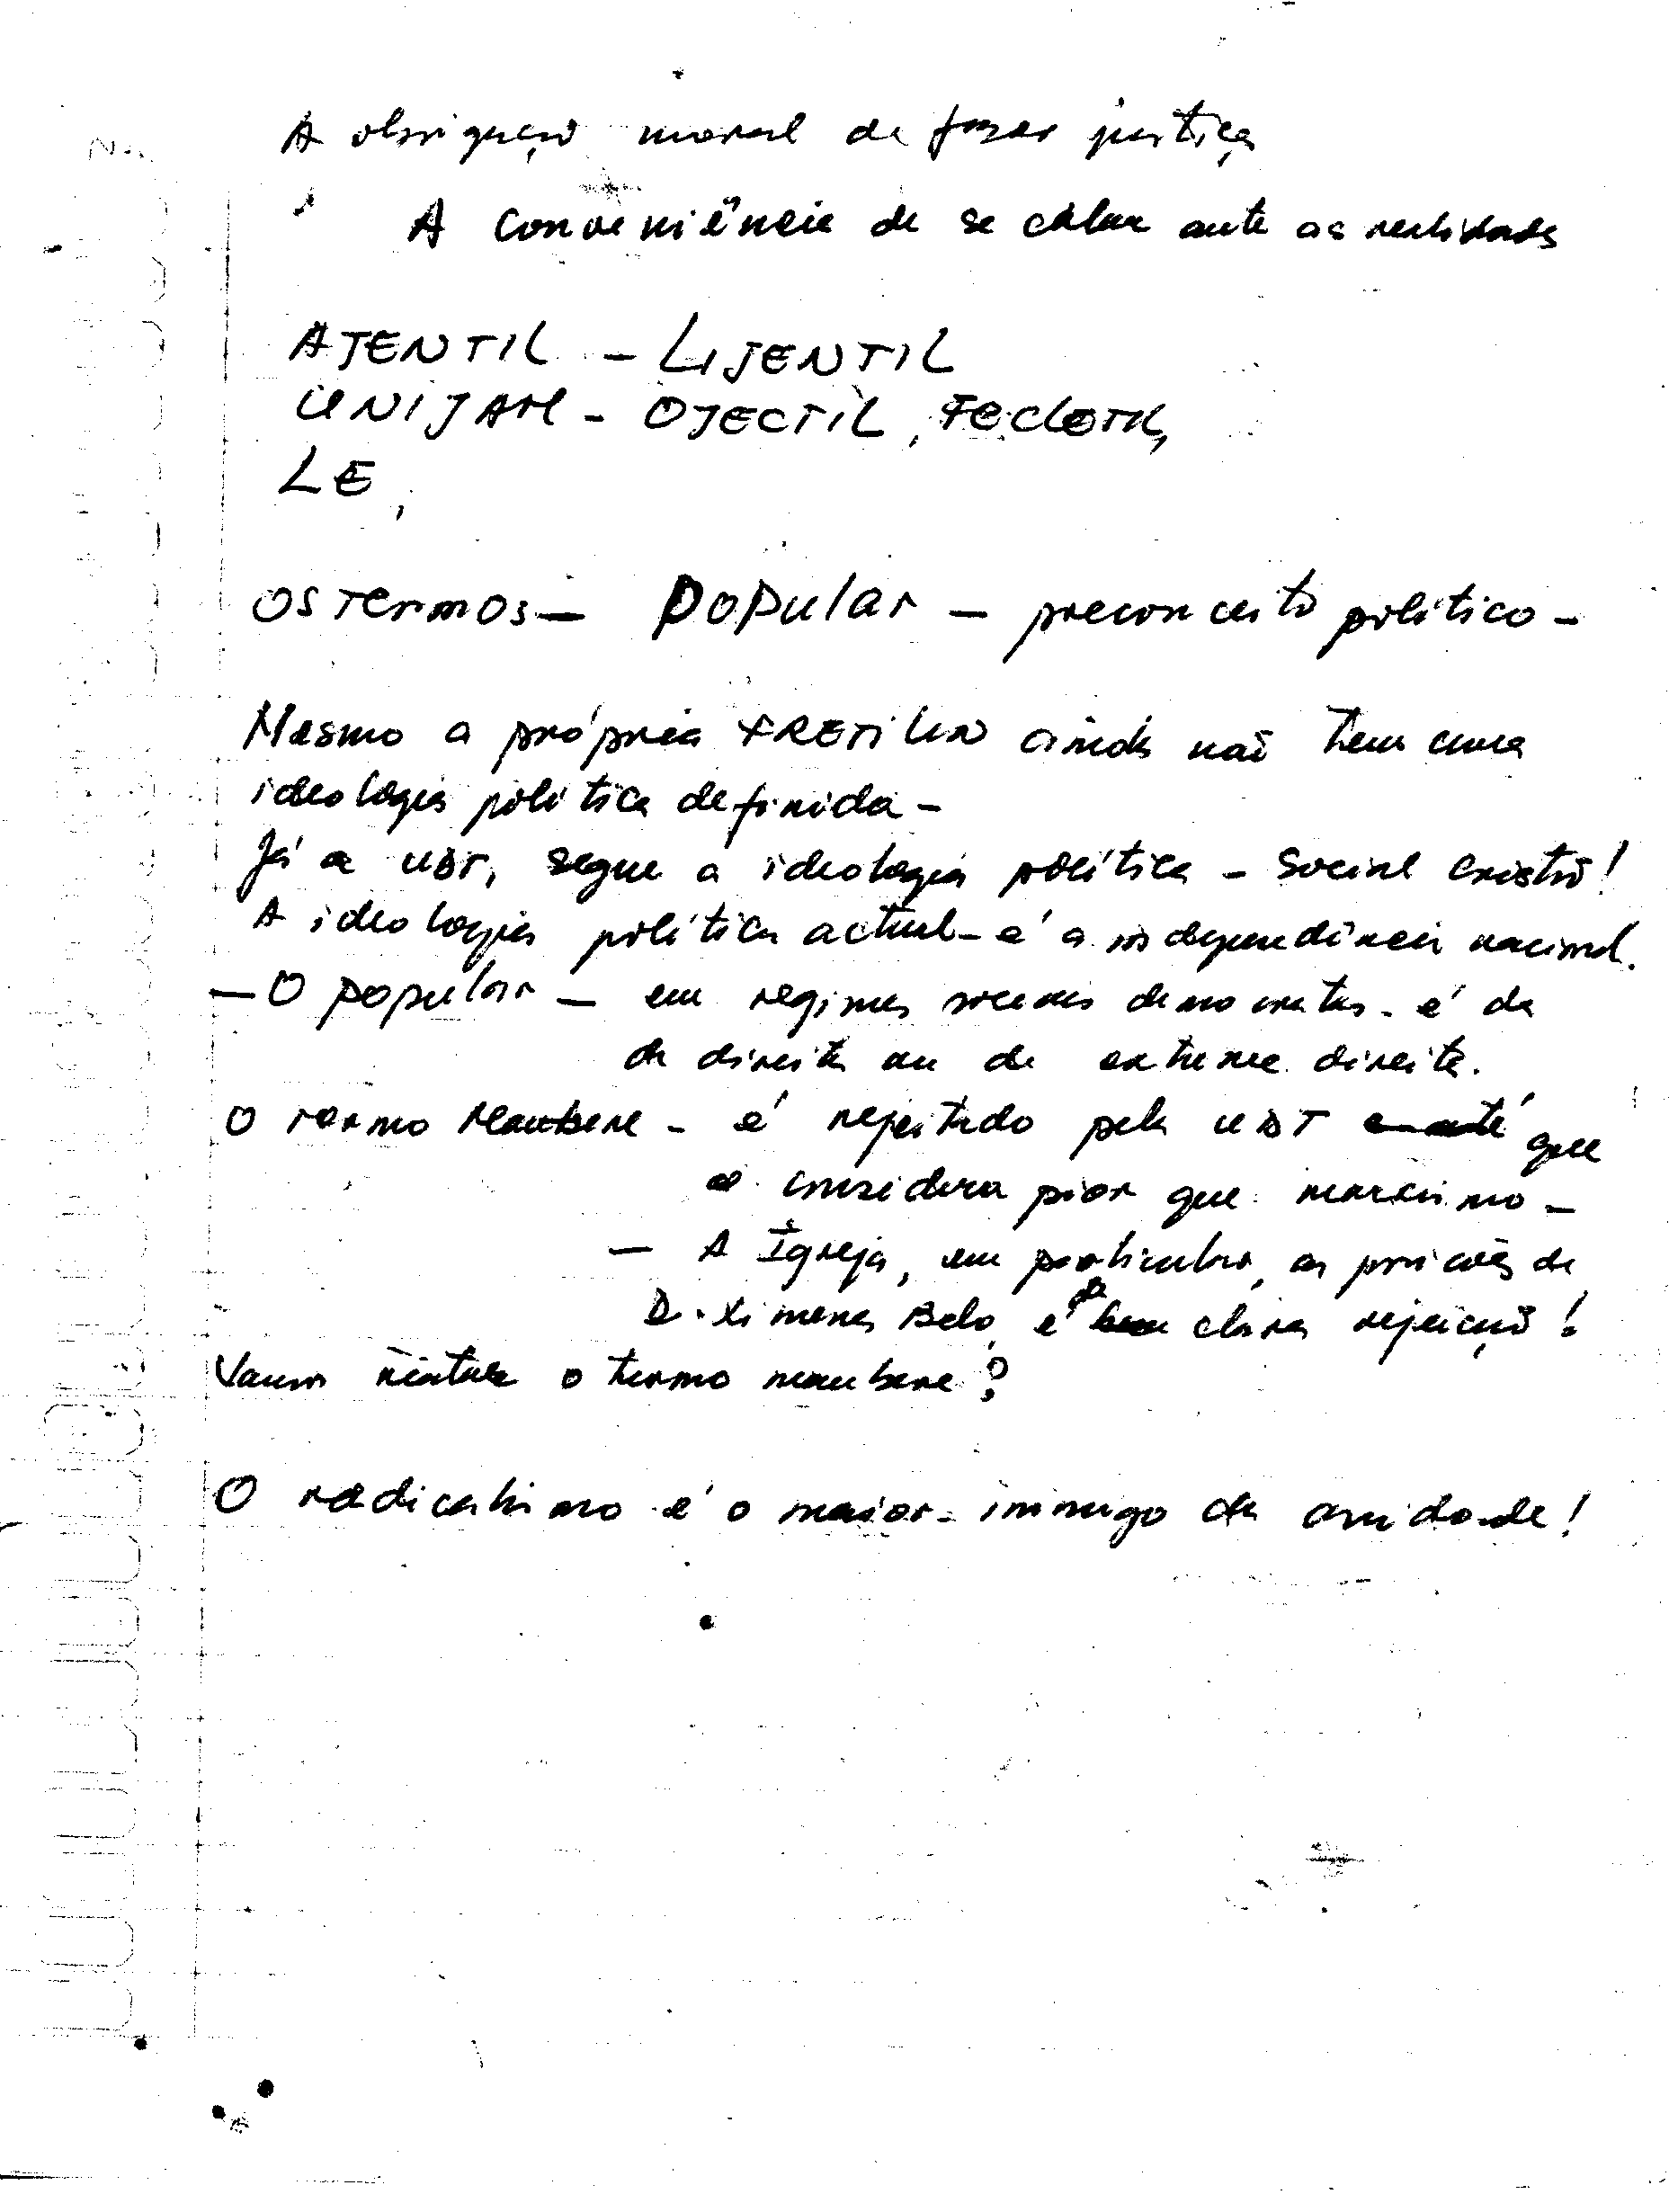 A obrigação moral de fazer justiça
A conveniência de se calar ante as realidades
AJENTIL - LIJENTIL
UNIJAM - OJECTIL, FECLETIL,
LE,
OS TERMOS - POPular - preconceito político -
Mesmo a própria FRETILIN ainda não tem uma
ideologia política definida -
Já a UDT, segue a ideologia política - social cristã!
A ideologia política actual - é a independência nacional.
- O popular - em regimes sociais democratas - é da
de direita ou de extrema direita.
O TERMO Maubere - é rejeitado pela UDT que
o considera pior que marxismo -
- A Igreja, em particular, as posições de
D. Ximenes Belo, é de clara rejeição!
Vamos o termo maubere?
O radicalismo é o maior inimigo da unidade!